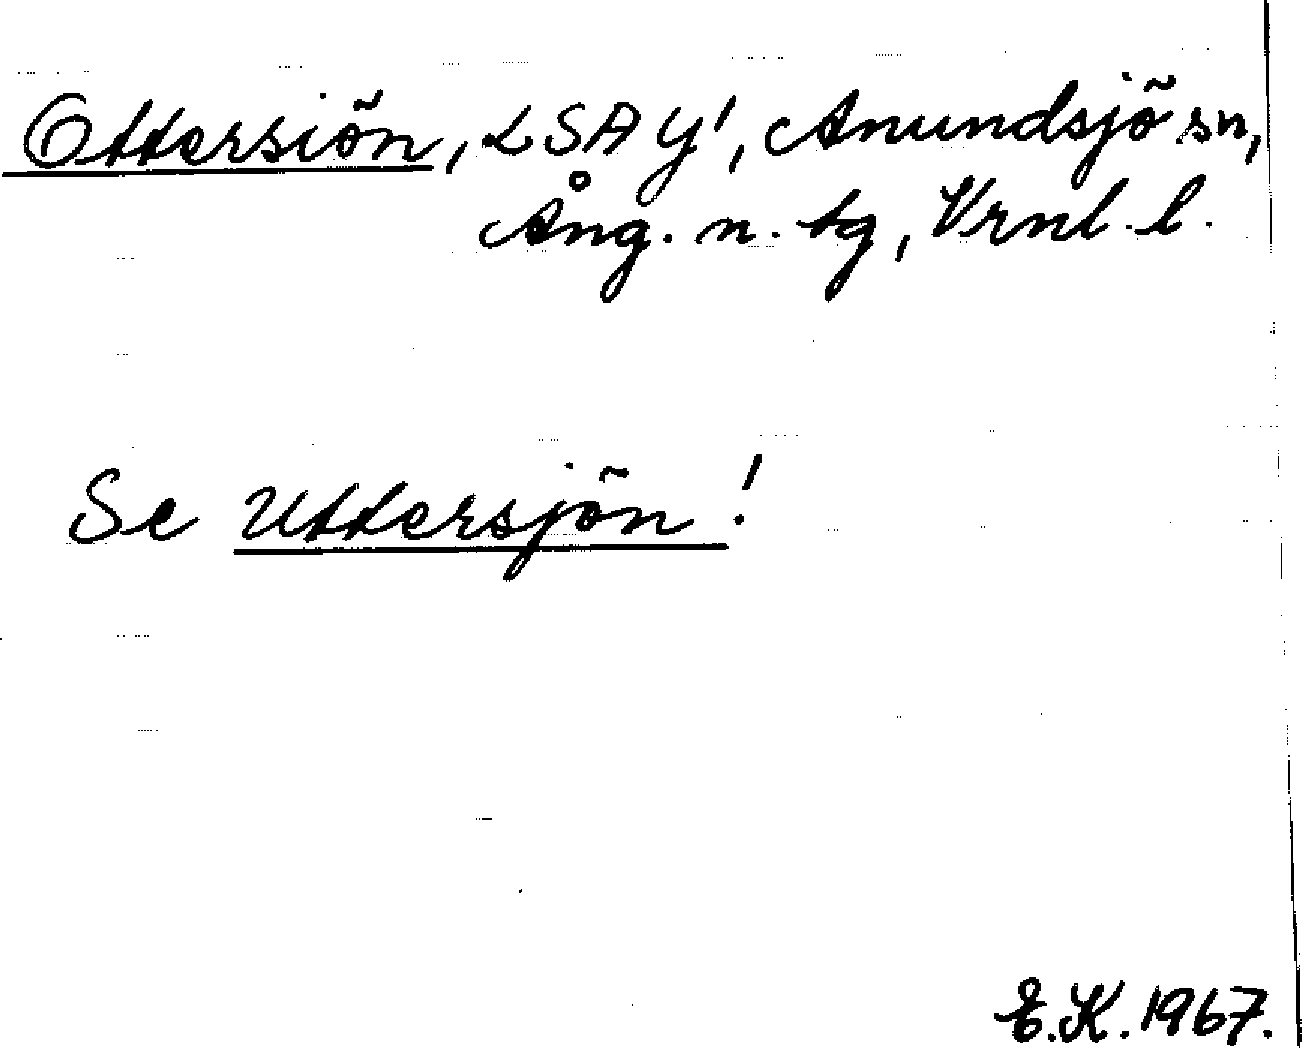 Ottersiön, LSA Y¹, Anundsjö sn,
Ång. n. tg, Vrnl. l.
Se Uttersjön!
E.K. 1967.